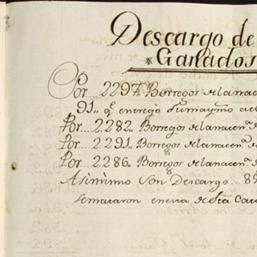 Descargo de
Ganados
Por 2297. Borregos de lanaci
91.. q.e entrego Dumaymo a
Por.. 2.282. Borregos de lanacen.
Por... 2.291. Borregos de lanacen.
Por... 2286. Borregos de lanacen.
Asimismo Son Descargo.. 8
se mataron en esta Cas